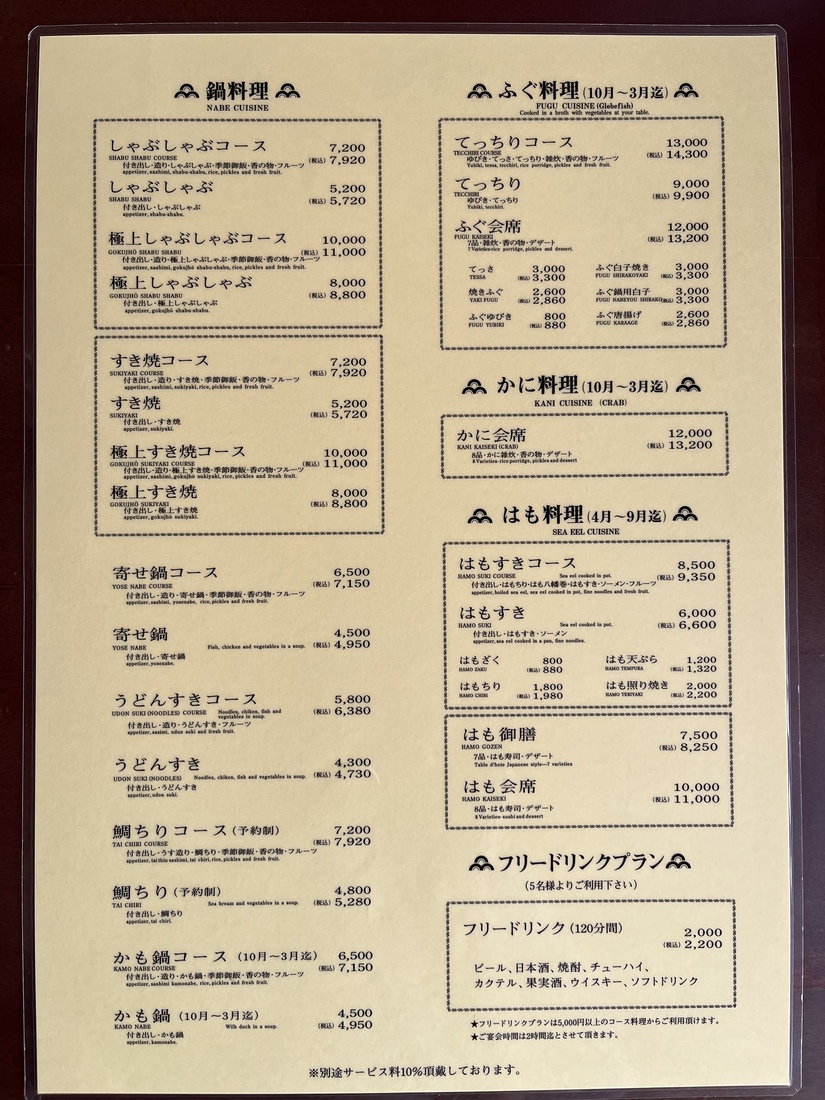 鍋料理
NABE CUISINE
しゃぶしゃぶコース 7,200
SHABU SHABU COURSE (税込) 7,920
付き出し・造り・しゃぶしゃぶ・季節御飯・香の物・フルーツ
appetizer, sashimi, shabu-shabu, rice, pickles and fresh fruit.
しゃぶしゃぶ 5,200
SHABU SHABU (税込) 5,720
付き出し・しゃぶしゃぶ
appetizer, shabu-shabu.
極上しゃぶしゃぶコース 10,000
GOKUJHŌ SHABU SHABU (税込) 11,000
付き出し・造り・極上しゃぶしゃぶ・季節御飯・香の物・フルーツ
appetizer, sashimi, gokujhō shabu-shabu, rice, pickles and fresh fruit.
極上しゃぶしゃぶ 8,000
GOKUJHŌ SHABU SHABU (税込) 8,800
付き出し・極上しゃぶしゃぶ
appetizer, gokujhō shabu-shabu.
すき焼コース 7,200
SUKIYAKI COURSE (税込) 7,920
付き出し・造り・すき焼・季節御飯・香の物・フルーツ
appetizer, sashimi, sukiyaki, rice, pickles and fresh fruit.
すき焼 5,200
SUKIYAKI (税込) 5,720
付き出し・すき焼
appetizer, sukiyaki.
極上すき焼コース 10,000
GOKUJHŌ SUKIYAKI COURSE (税込) 11,000
付き出し・造り・極上すき焼・季節御飯・香の物・フルーツ
appetizer, sashimi, gokujhō sukiyaki, rice, pickles and fresh fruit.
極上すき焼 8,000
GOKUJHŌ SUKIYAKI (税込) 8,800
付き出し・極上すき焼
appetizer, gokujhō sukiyaki.
寄せ鍋コース 6,500
YOSE NABE COURSE (税込) 7,150
付き出し・造り・寄せ鍋・季節御飯・香の物・フルーツ
appetizer, sashimi, yosenabe, rice, pickles and fresh fruit.
寄せ鍋 4,500
YOSE NABE Fish, chicken and vegetables in a soup. (税込) 4,950
付き出し・寄せ鍋
appetizer, yosenabe.
うどんすきコース 5,800
UDON SUKI (NOODLES) COURSE Noodles, chiken, fish and vegetables in soup. (税込) 6,380
付き出し・造り・うどんすき・フルーツ
appetizer, sasimi, udon suki and fresh fruit.
うどんすき 4,300
UDON SUKI (NOODLES) Noodles, chiken, fish and vegetables in soup. (税込) 4,730
付き出し・うどんすき
appetizer, udon suki.
鯛ちりコース(予約制) 7,200
TAI CHIRI COURSE (税込) 7,920
付き出し・うす造り・鯛ちり・季節御飯・香の物・フルーツ
appetizer, tai thin sashimi, tai chiri, rice, pickles and fresh fruit.
鯛ちり(予約制) 4,800
TAI CHIRI Sea bream and vegetables in a soup. (税込) 5,280
付き出し・鯛ちり
appetizer, tai chiri.
かも鍋コース (10月〜3月迄) 6,500
KAMO NABE COURSE (税込) 7,150
付き出し・造り・かも鍋・季節御飯・香の物・フルーツ
appetizer, sashimi kamonabe, rice, pickles and fresh fruit.
かも鍋 (10月〜3月迄) 4,500
KAMO NABE Wilb duck in a soup. (税込) 4,950
付き出し・かも鍋
appetizer, kamonabe.
ふぐ料理(10月〜3月迄)
FUGU CUISINE (Globefish)
Cooked in a broth with vegetables at your table.
てっちりコース 13,000
TECCHIRI COURSE (税込) 14,300
ゆびき・てっさ・てっちり・雑炊・香の物・フルーツ
Yubiki, tessa, tecchiri, rice porridge, pickles and fresh fruit.
てっちり 9,000
TECCHIRI (税込) 9,900
ゆびき・てっちり
Yubiki, tecchiri.
ふぐ会席 12,000
FUGU KAISEKI (税込) 13,200
7品・雑炊・香の物・デザート
7 Varieties-rice porridge, pickles and dessert.
てっさ 3,000 ふぐ白子焼き 3,000
TESSA (税込) 3,300 FUGU SHIRAKOYAKI (税込) 3,300
焼きふぐ 2,600 ふぐ鍋用白子 3,000
YAKI FUGU (税込) 2,860 FUGU NABEYOU SHIRAKO (税込) 3,300
ふぐゆびき 800 ふぐ唐揚げ 2,600
FUGU YUBIKI (税込) 880 FUGU KARAAGE (税込) 2,860
かに料理(10月〜3月迄)
KANI CUISINE (CRAB)
かに会席 12,000
KANI KAISEKI (CRAB) (税込) 13,200
8品・かに雑炊・香の物・デザート
8 Varieties-rice porridge, pickles and dessert
はも料理(4月〜9月迄)
SEA EEL CUISINE
はもすきコース 8,500
HAMO SUKI COURSE Sea eel cooked in pot. (税込) 9,350
付き出し・はもちり・はも八幡巻・はもすき・ソーメン・フルーツ
appetizer, boiled sea eel, sea eel cooked in pot, fine noodles and fresh fruit.
はもすき 6,000
HAMO SUKI Sea eel cooked in pot. (税込) 6,600
付き出し・はもすき・ソーメン
appetizer, sea eel cooked in a pan, fine noodles.
はもざく 800 はも天ぷら 1,200
HAMO ZAKU (税込) 880 HAMO TEMPURA (税込) 1,320
はもちり 1,800 はも照り焼き 2,000
HAMO CHIRI (税込) 1,980 HAMO TERIYAKI (税込) 2,200
はも御膳 7,500
HAMO GOZEN (税込) 8,250
7品・はも寿司・デザート
Table d'hote Japanese style—7 varieties
はも会席 10,000
HAMO KAISEKI (税込) 11,000
8品・はも寿司・デザート
8 Varieties- sushi and dessert
フリードリンクプラン
(5名様よりご利用下さい)
フリードリンク(120分間) 2,000
(税込) 2,200
ビール、日本酒、焼酎、チューハイ、
カクテル、果実酒、ウイスキー、ソフトドリンク
★フリードリンクプランは5,000円以上のコース料理からご利用頂けます。
★ご宴会時間は2時間迄とさせて頂きます。
※別途サービス料10%頂戴しております。